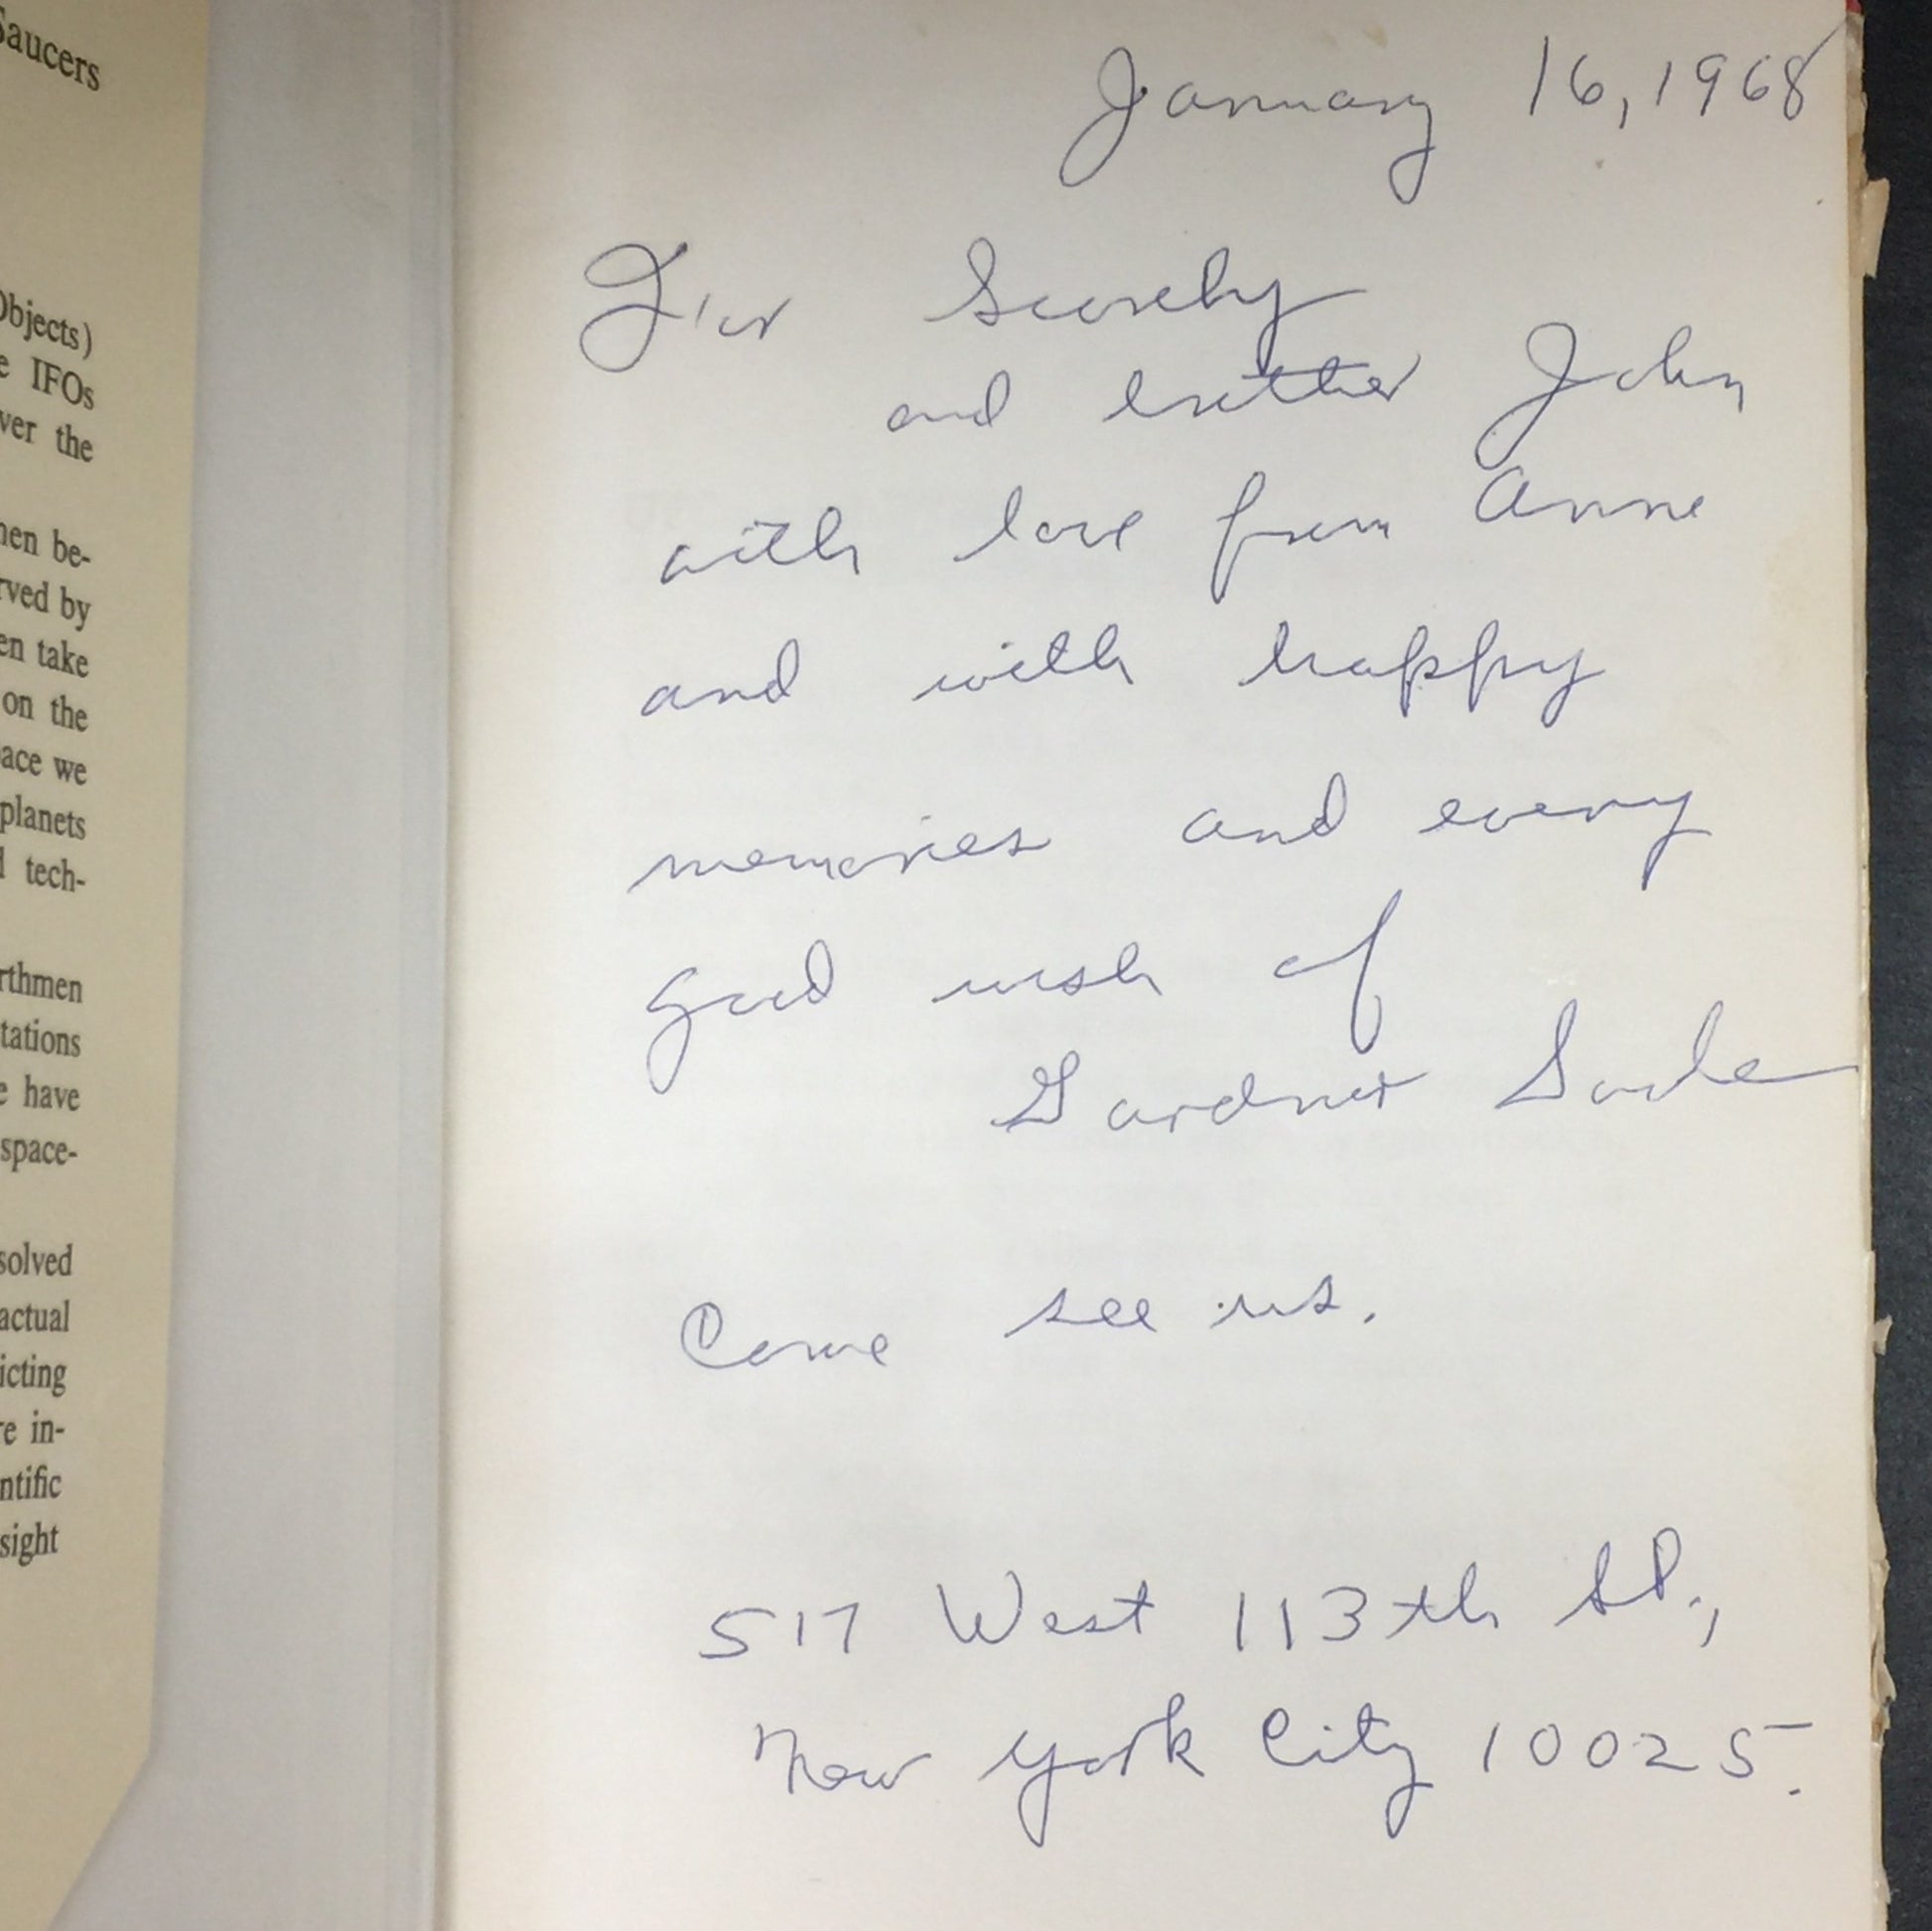 Saucers
Objects)
e IFOs
ver the
hen be-
rved by
en take
on the
pace we
planets
d tech-
rthmen
tations
e have
space-
solved
actual
icting
re in-
ntific
sight
January 16, 1968
For
and brother John
with love from Anne
and with happy
memories and every
good wish of
Gardner Soule
Come see us.
517 West 113th St.,
New York City 10025.